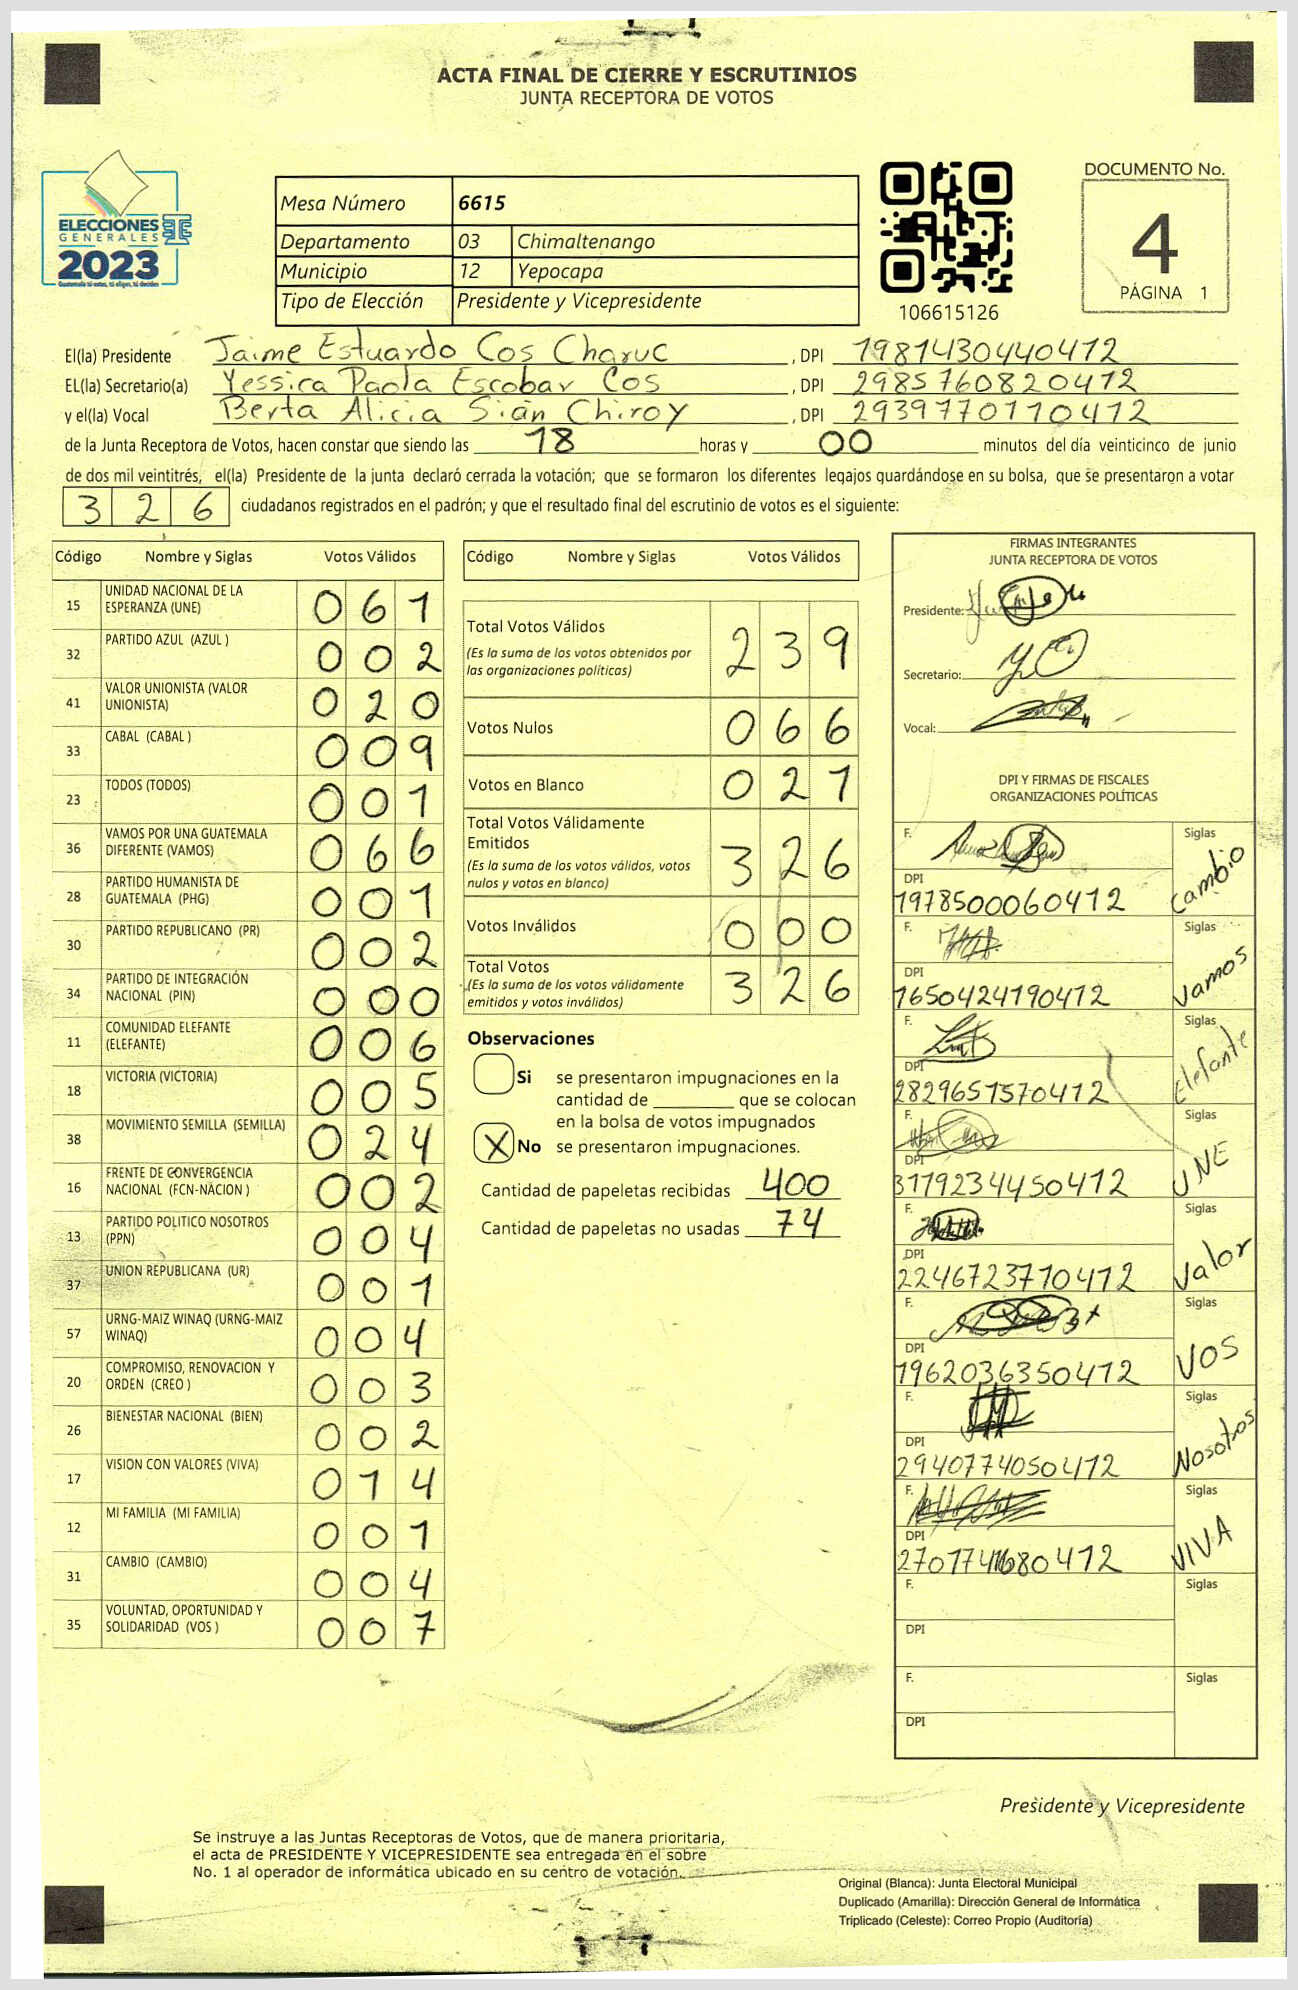 ACTA FINAL DE CIERRE Y ESCRUTINIOS
JUNTA RECEPTORA DE VOTOS
ELECCIONES
GENERALES
2023
Guatemala tú votas, tú eliges, tú decides
Mesa Número 6615
Departamento 03 Chimaltenango
Municipio 12 Yepocapa
Tipo de Elección Presidente y Vicepresidente
106615126
DOCUMENTO No.
4
PÁGINA 1
El(la) Presidente Jaime Estuardo Cos Charuc , DPI 1981430440412
EL(la) Secretario(a) Yessica Paola Escobar Cos , DPI 2985760820412
y el(la) Vocal Berta Alicia Sián Chiroy , DPI 2939770110412
de la Junta Receptora de Votos, hacen constar que siendo las 18 horas y 00 minutos del día veinticinco de junio
de dos mil veintitrés, el(la) Presidente de la junta declaró cerrada la votación; que se formaron los diferentes legajos quardándose en su bolsa, que se presentaron a votar
326 ciudadanos registrados en el padrón; y que el resultado final del escrutinio de votos es el siguiente:
Código Nombre y Siglas Votos Válidos
15 UNIDAD NACIONAL DE LA ESPERANZA (UNE) 061
32 PARTIDO AZUL (AZUL ) 002
41 VALOR UNIONISTA (VALOR UNIONISTA) 020
33 CABAL (CABAL ) 009
23 TODOS (TODOS) 001
36 VAMOS POR UNA GUATEMALA DIFERENTE (VAMOS) 066
28 PARTIDO HUMANISTA DE GUATEMALA (PHG) 001
30 PARTIDO REPUBLICANO (PR) 002
34 PARTIDO DE INTEGRACIÓN NACIONAL (PIN) 000
11 COMUNIDAD ELEFANTE (ELEFANTE) 006
18 VICTORIA (VICTORIA) 005
38 MOVIMIENTO SEMILLA (SEMILLA) 024
16 FRENTE DE CONVERGENCIA NACIONAL (FCN-NACION ) 002
13 PARTIDO POLITICO NOSOTROS (PPN) 004
37 UNION REPUBLICANA (UR) 001
57 URNG-MAIZ WINAQ (URNG-MAIZ WINAQ) 004
20 COMPROMISO, RENOVACION Y ORDEN (CREO ) 003
26 BIENESTAR NACIONAL (BIEN) 002
17 VISION CON VALORES (VIVA) 014
12 MI FAMILIA (MI FAMILIA) 001
31 CAMBIO (CAMBIO) 004
35 VOLUNTAD, OPORTUNIDAD Y SOLIDARIDAD (VOS ) 007
Código Nombre y Siglas Votos Válidos
Total Votos Válidos 239
(Es la suma de los votos obtenidos por
las organizaciones políticas)
Votos Nulos 066
Votos en Blanco 021
Total Votos Válidamente
Emitidos 326
(Es la suma de los votos válidos, votos
nulos y votos en blanco)
Votos Inválidos 000
Total Votos 326
(Es la suma de los votos válidamente
emitidos y votos inválidos)
Observaciones
Si se presentaron impugnaciones en la
cantidad de ________ que se colocan
en la bolsa de votos impugnados
X No se presentaron impugnaciones.
Cantidad de papeletas recibidas 400
Cantidad de papeletas no usadas 74
FIRMAS INTEGRANTES
JUNTA RECEPTORA DE VOTOS
Presidente:
Secretario:
Vocal:
DPI Y FIRMAS DE FISCALES
ORGANIZACIONES POLÍTICAS
F. Siglas
DPI
1978500060412 Cambio
F. Siglas
DPI
1650424190412 Vamos
F. Siglas
DPI
2829651570412 Elefante
F. Siglas
DPI
3179234450412 UNE
F. Siglas
DPI
2246723710412 Valor
F. Siglas
DPI
1962036350412 VOS
F. Siglas
DPI
2940774050412 Nosotros
F. Siglas
DPI
VIVA
F. Siglas
DPI
F. Siglas
DPI
Presidente y Vicepresidente
Se instruye a las Juntas Receptoras de Votos, que de manera prioritaria,
el acta de PRESIDENTE Y VICEPRESIDENTE sea entregada en el sobre
No. 1 al operador de informática ubicado en su centro de votación.
Original (Blanca): Junta Electoral Municipal
Duplicado (Amarilla): Dirección General de Informática
Triplicado (Celeste): Correo Propio (Auditoría)